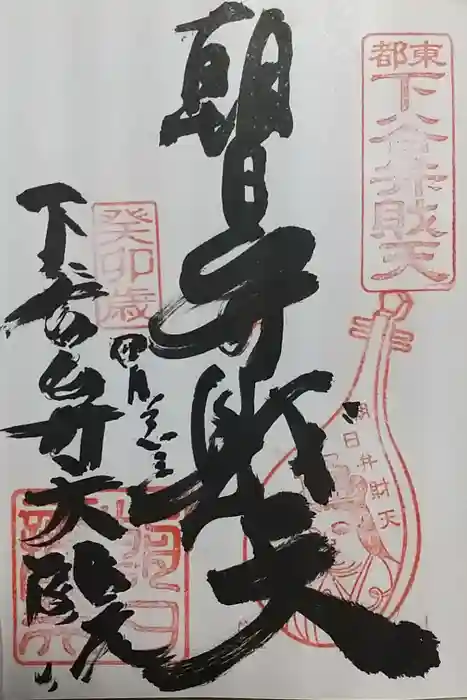 東都
下谷弁財天
朝日弁財天
朝日弁財天
癸卯歳
四月
下谷弁天院